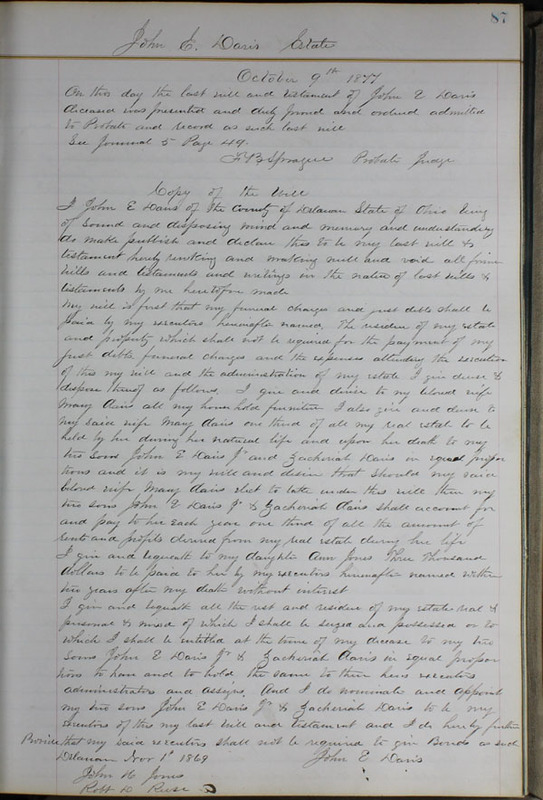 87
John E. Davis Estate
October 9th 1877
On this day the last will and testament of John E Davis
deceased was presented and duly proved and ordered admitted
to Probate and record as such last will
See Journal 5 Page 49.
F B Sprague Probate Judge
Copy of the Will
I John E Davis of the County of Delaware State of Ohio being
of sound and disposing mind and memory and understanding
do make publish and declare this to be my last will &
testament hereby revoking and making null and void all prior
wills and testaments and writings in the nature of last wills &
testaments by me heretofore made
My will is first that my funeral charges and just debts shall be
paid by my executors hereinafter named. The residue of my estate
and property which shall not be required for the payment of my
just debts funeral charges and the expenses attending the execution
of this my will and the administration of my estate I give devise &
dispose thereof as follows. I give and devise to my beloved wife
Mary Davis all my household furniture I also give and devise to
my said wife Mary Davis one third of all my real estate to be
held by her during her natural life and upon her death to my
two sons John E Davis Jr and Zachariah Davis in equal propor
tions and it is my will and desire that should my said
beloved wife Mary Davis elect to take under this will then my
two sons John E Davis Jr & Zachariah Davis shall account for
and pay to her each year one third of all the amount of
rents and profits derived from my real estate during her life
I give and bequeath to my daughter Ann Jones Three Thousand
dollars to be paid to her by my executors hereinafter named within
two years after my death without interest
I give and bequeath all the rest and residue of my estate real &
personal & mixed of which I shall be seized and possessed or to
which I shall be entitled at the time of my decease to my two
sons John E Davis Jr & Zachariah Davis in equal propor
tions to have and to hold the same to their heirs executors
administrators and assigns. And I do nominate and appoint
my two sons John E Davis Jr & Zachariah Davis to be my
executors of this my last will and testament and I do hereby further
Provide that my said executors shall not be required to give Bonds as such
Delaware Nov 1st 1869 John E Davis
John H. Jones
Robt D. Reese